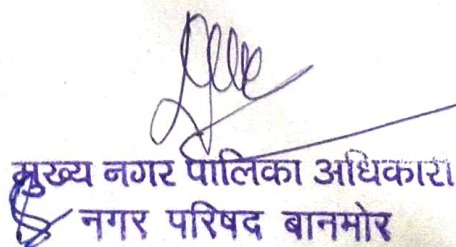 मुख्य नगर पालिका अधिकारी
नगर परिषद बानमोर